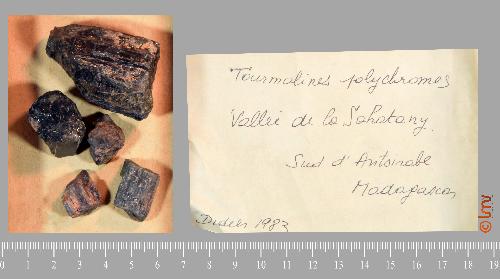 Tourmalines polychromes
Vallée de la Sahatany
Sud d'Antsirabe
Madagascar
Didier 1983
0 1 2 3 4 5 6 7 8 9 10 11 12 13 14 15 16 17 18 19